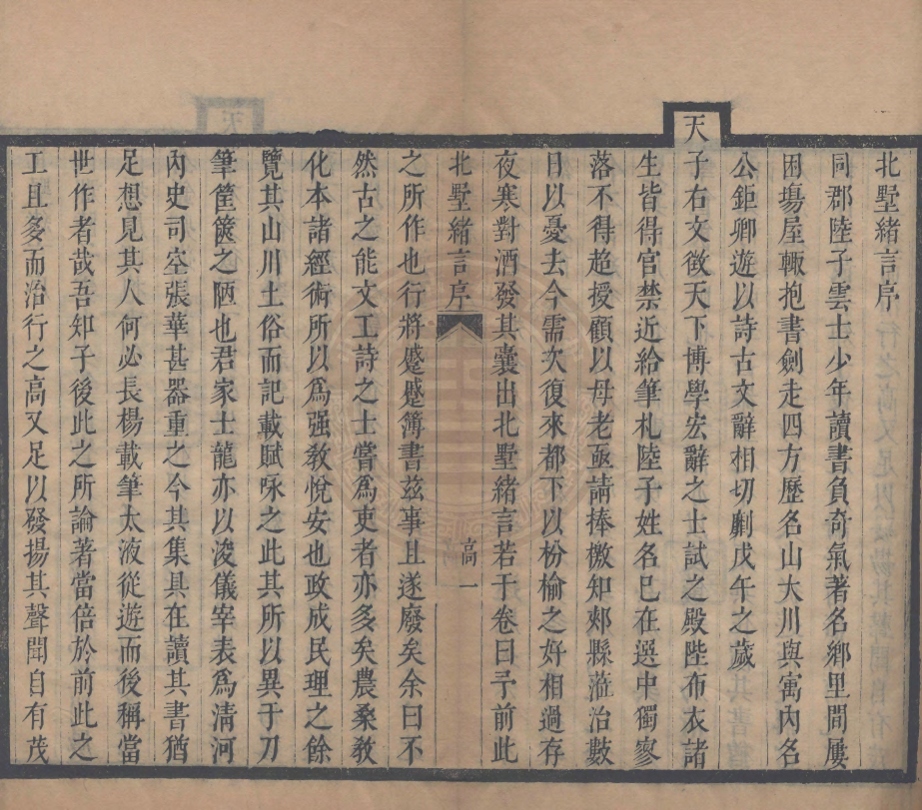 北墅緒言序
同郡陸子雲士少年讀書負奇氣著名鄉里間屢
困塲屋輙抱書劍走四方歷名山大川與寓內名
公鉅卿遊以詩古文辭相切劘戊午之歲
天子右文徵天下博學宏辭之士試之殿陛布衣諸
生皆得官禁近給筆札陸子姓名巳在選中獨寥
落不得超授顧以母老亟請捧檄知郟縣蒞治數
月以憂去今需次復來都下以枌榆之好相過存
夜寒對酒發其囊出北墅緒言若干卷曰予前此
北墅緒言序
高一
之所作也行將蹙蹙簿書兹事且遂廢矣余曰不
然古之能文工詩之士嘗爲吏者亦多矣農桑敎
化本諸經術所以爲强敎悅安也政成民理之餘
覽其山川土俗而記載賦咏之此其所以異于刀
筆筐篋之陋也君家士龍亦以浚儀宰表爲淸河
內史司空張華甚器重之今其集具在讀其書猶
足想見其人何必長楊載筆太液從遊而後稱當
世作者哉吾知子後此之所論著當倍於前此之
工且多而治行之高又足以發揚其聲聞自有茂